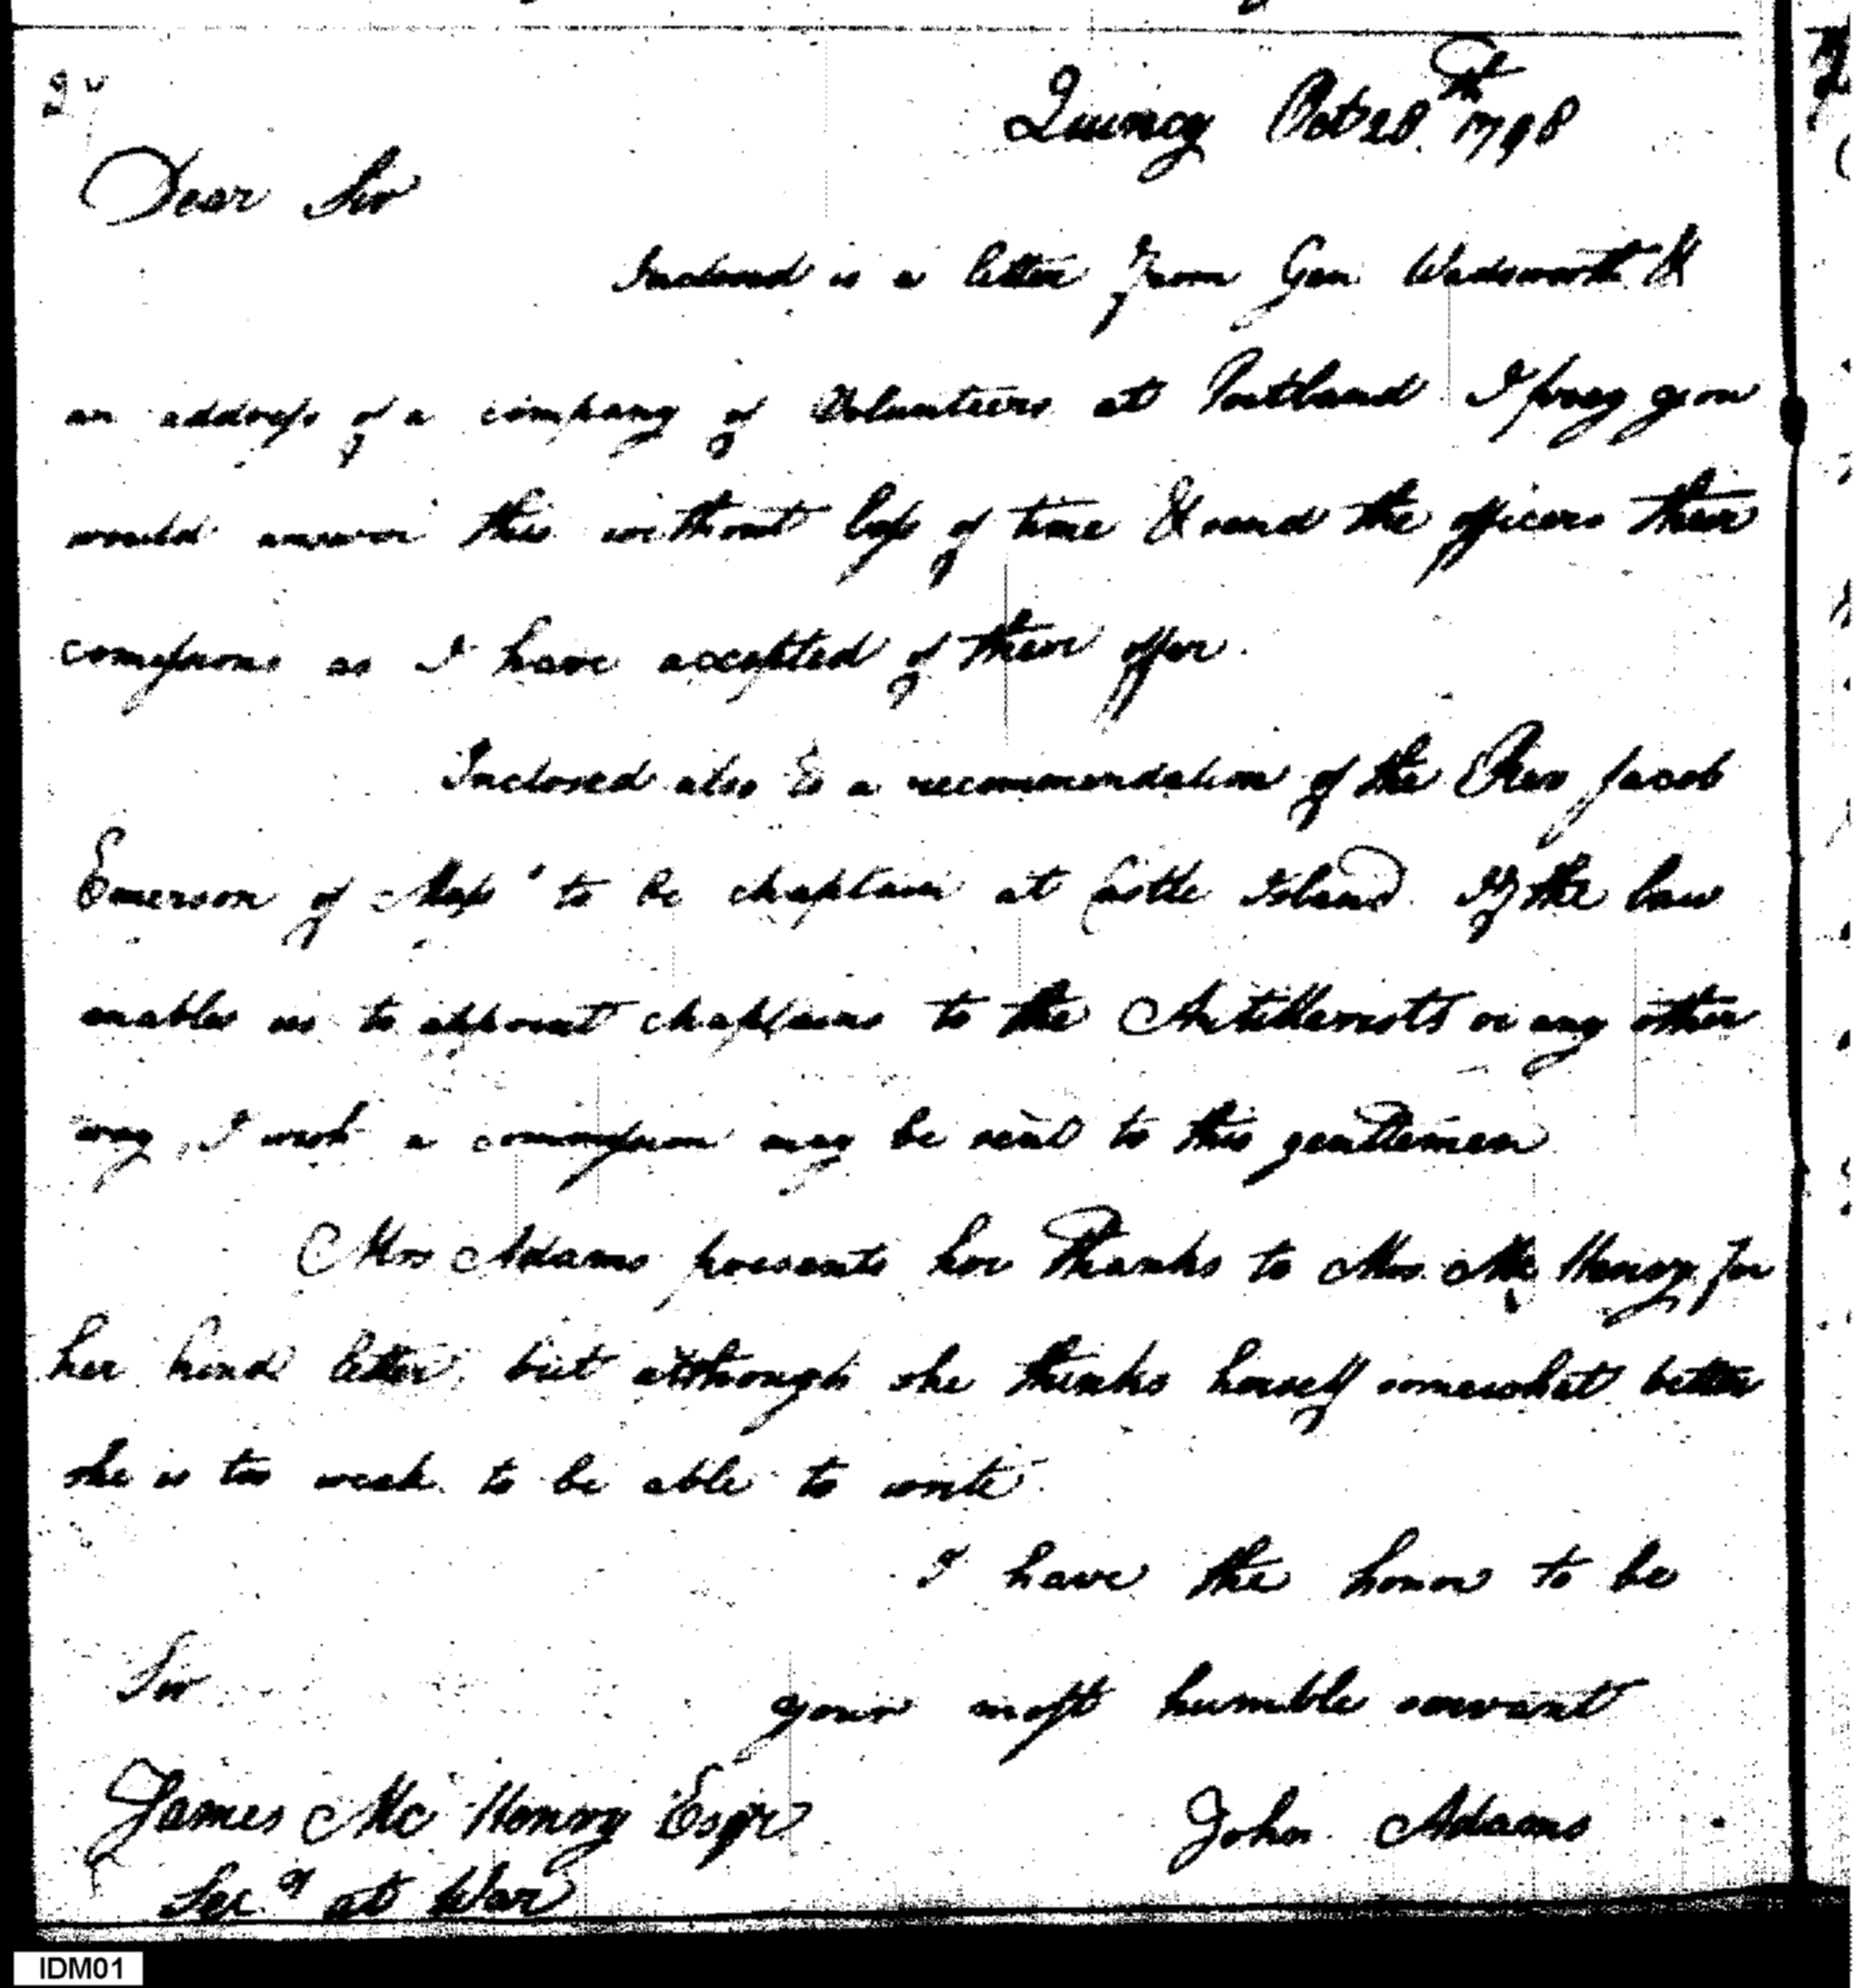 Quincy Oct 28th. 1798
Dear Sir
Inclosed is a letter from Gen Wadsworth &
an address of a company of Volunteers at Portland. I pray you
would answer this without loss of time & send the officers their
comissions as I have accepted of their offer.
Inclosed also is a recommendation of the Rev Jacob
Emerson of to be chaplain at Castle Island. If the law
enables us to appoint chaplains to the Artillerists or any other
way, I wish a commission may be sent to this gentleman
Mrs Adams presents her thanks to Mrs. Mc Henry for
her kind letter, but although she thinks herself somewhat better
she is too weak to be able to write.
I have the honor to be
Sir
your most humble servant
James Mc Henry Esqr
John Adams
Secy at War
IDM01